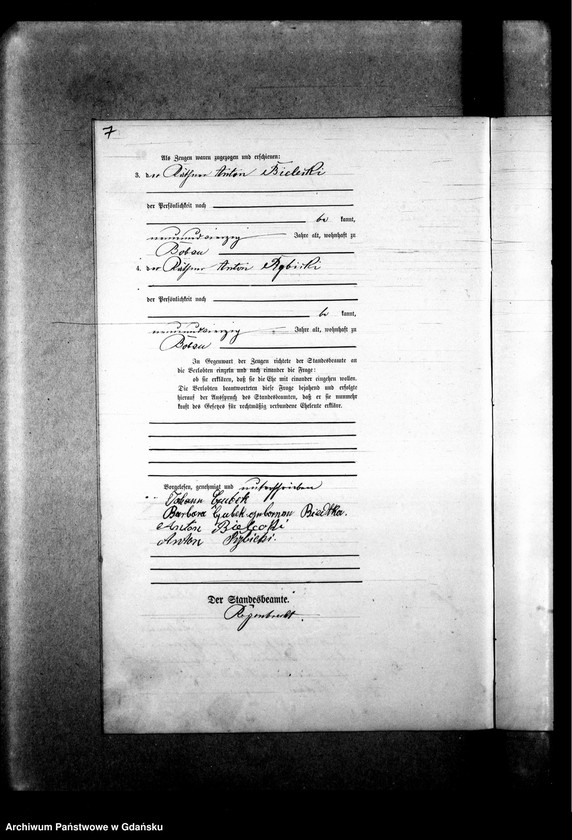 7
Als Zeugen waren zugezogen und erschienen:
3. der Käthner Anton Bielicki
der Persönlichkeit nach
be kannt,
neunundvierzig Jahre alt, wohnhaft zu
Bobau
4. der Käthner Anton Rybicki
der Persönlichkeit nach
be kannt,
neunundvierzig Jahre alt, wohnhaft zu
Bobau
In Gegenwart der Zeugen richtete der Standesbeamte an
die Verlobten einzeln und nach einander die Frage:
ob sie erklären, daß sie die Ehe mit einander eingehen wollen.
Die Verlobten beantworteten diese Frage bejahend und erfolgte
hierauf der Ausspruch des Standesbeamten, daß er sie nunmehr
kraft des Gesetzes für rechtmäßig verbundene Eheleute erkläre.
Vorgelesen, genehmigt und unterschrieben
Johann Gubek
Barbara Gubek geborne
Anton
Anton Rybicki.
Der Standesbeamte.
Regenbrecht.
Archiwum Państwowe w Gdańsku